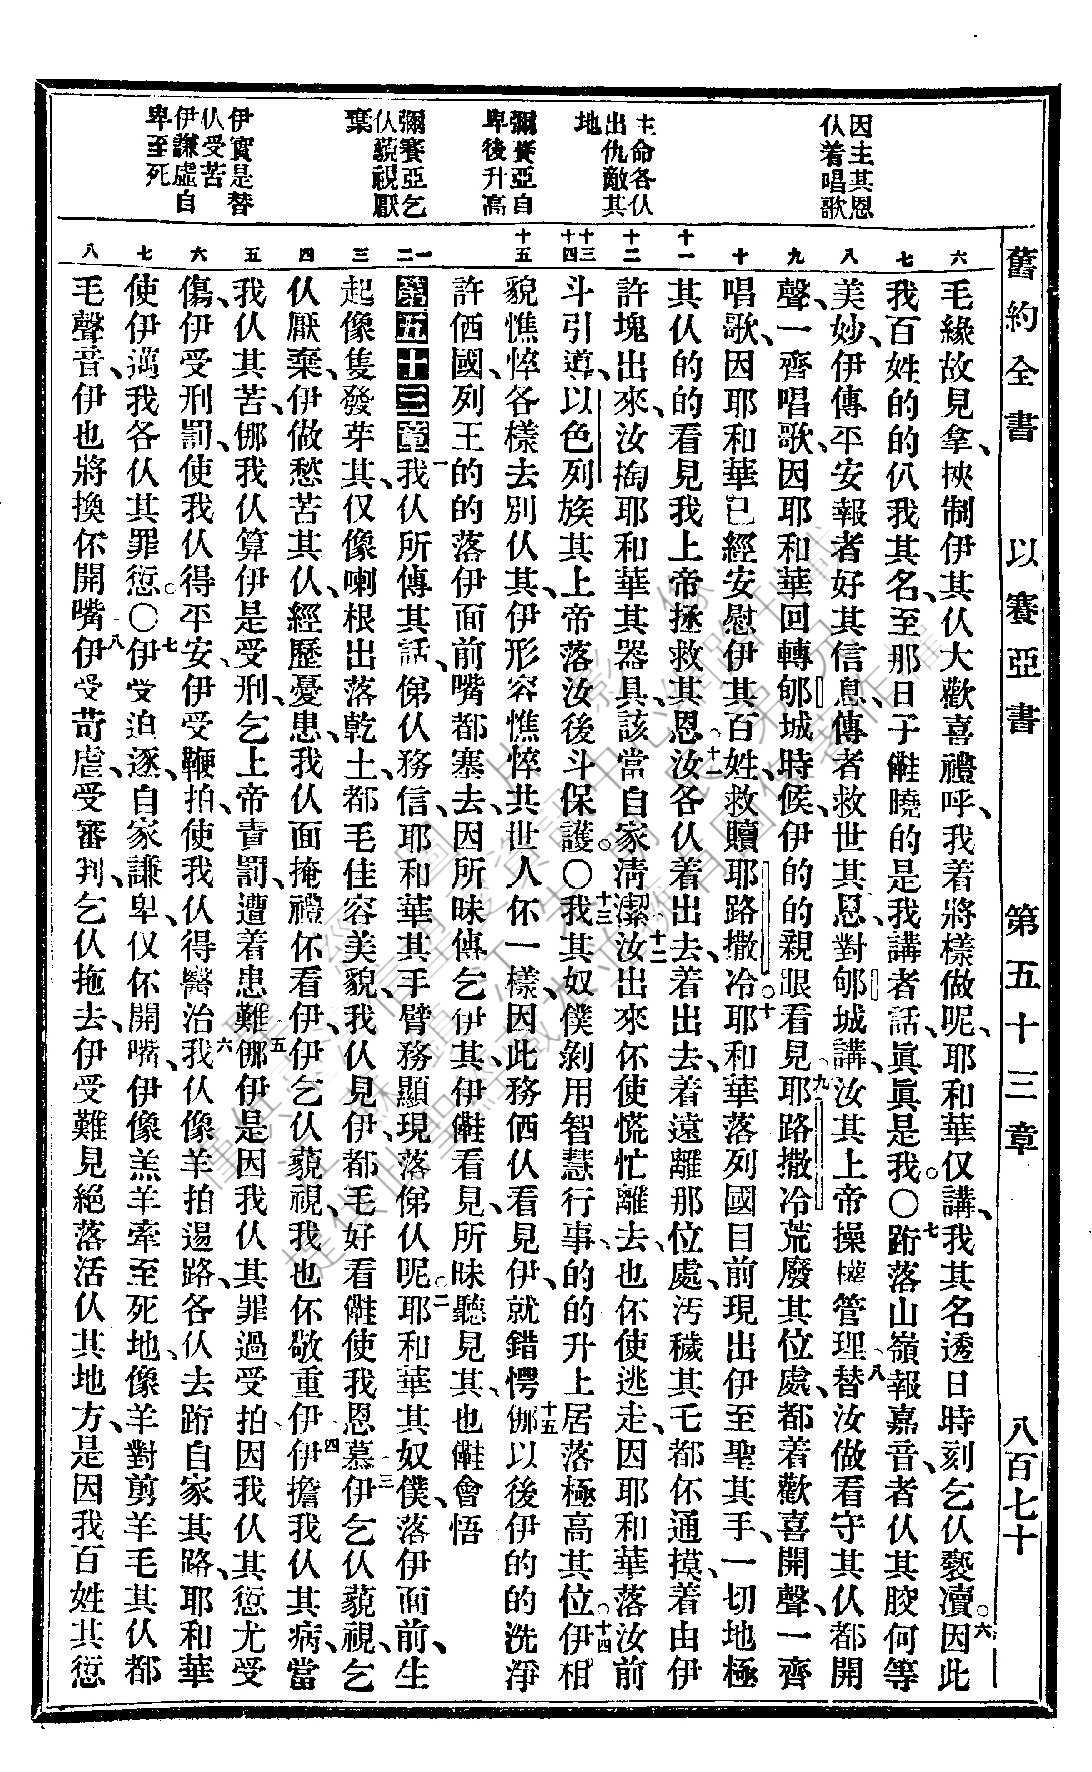 舊約全書 以賽亞書 第五十三章 八百七十
因主其恩
仈着唱歌
主命各仈
出仇敵其
地
彌賽亞自
卑後升高
彌賽亞乞
仈藐視厭
棄
伊實是替
仈受苦
伊謙虛自
卑至死
六 七 八 九 十 十一 十二 十三 十四 十五 一 二 三 四 五 六 七 八
毛緣故見拿、挾制伊其仈大歡喜禮呼、我着將樣做呢、耶和華仅講、我其名透日時刻乞仈褻瀆。六因此
我百姓的的仈我其名、至那日子儺曉的是我講者話、眞眞是我。〇七跻落山嶺報嘉音者仈其骹何等
美妙、伊傳平安報者好其信息、傳者救世其恩、對郇城講、汝其上帝操權管理、八替汝做看守其仈都開
聲、一齊唱歌、因耶和華回轉郇城時候、伊的的親眼看見、九耶路撒冷荒廢其位處、都着歡喜開聲、一齊
唱歌、因耶和華已經安慰伊其百姓、救贖耶路撒冷。十耶和華落列國目前現出伊至聖其手、一切地極
其仈的的看見我上帝拯救其恩。十一汝各仈着出去、着出去、着遠離那位處、汚穢其乇都伓通摸、着由伊
許塊出來、汝掏耶和華其器具、該當自家清潔、十二汝出來伓使慌忙離去、也伓使逃走、因耶和華落汝前
斗引導、以色列族其上帝落汝後斗保護。〇十三我其奴僕剝用智慧行事、的的升上居落極高其位。十四伊相
貌憔悴各樣去別仈其、伊形容憔悴共世人伓一樣、因此務価仈看見伊、就錯愕、十五㑚以後伊的的洗凈
許価國、列王的的落伊面前嘴都塞去、因所昧傳乞伊其、伊儺看見、所昧聽見其、也儺會悟
第五十三章 一我仈所傳其話、俤仈務信、耶和華其手臂務顯現落俤仈呢。二耶和華其奴僕、落伊面前、生
起像隻發芽其、仅像喇根出落乾土、都毛佳容美貌、我仈見伊、都毛好看儺使我恩慕伊、三乞仈藐視、乞
仈厭棄、伊做愁苦其仈、經歷憂患、我仈面掩禮伓看伊、伊乞仈藐視、我也伓敬重伊、四伊擔我仈其病、當
我仈其苦、㑚我仈算伊是受刑、乞上帝責罰、遭着患難、五㑚伊是因我仈其罪過受拍、因我仈其愆尤受
傷、伊受刑罰、使我仈得平安、伊受鞭拍、使我仈得醫治、六我仈像羊拍逿路、各仈去跻自家其路、耶和華
使伊邁我各仈其罪愆。〇七伊受迫逐、自家謙卑、仅伓開嘴、伊像羔羊牽至死地、像羊對剪羊毛其仈、都
毛聲音、伊也將換伓開嘴、八伊受苛虐、受審判、乞仈拖去、伊受難見絕落活仈其地方、是因我百姓其愆